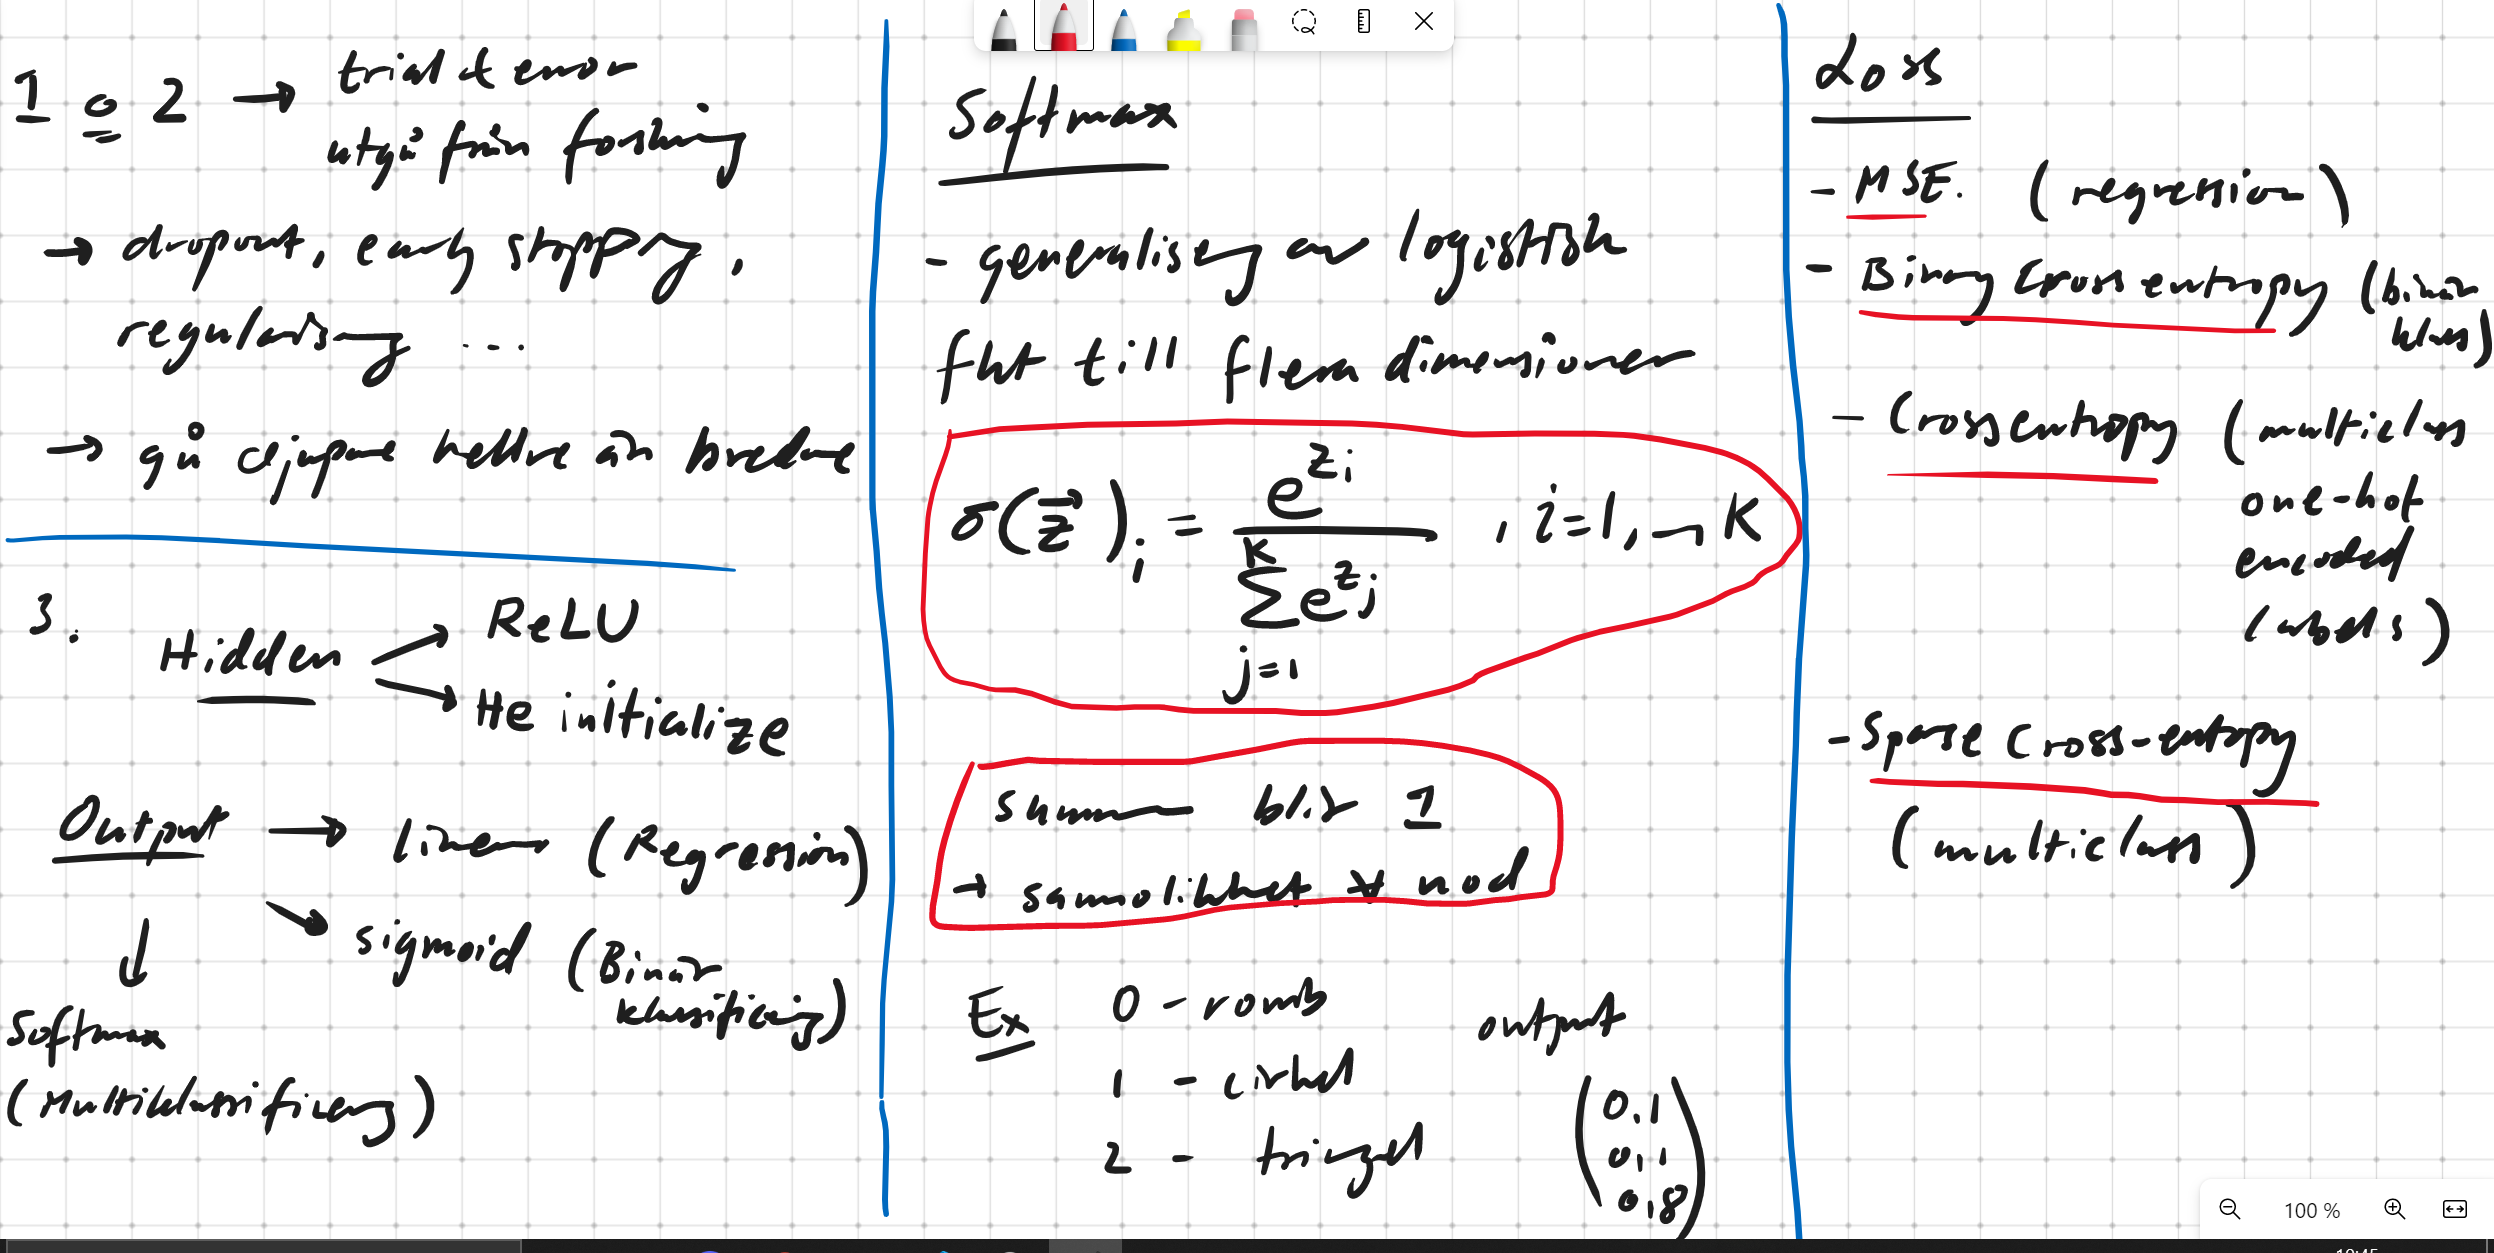 1 o 2 → trial & error
utgå från forskning
→ dropout, early stopping,
regularisering ...
→ gå djupare hellre än bredare
3.
Hidden → ReLU
→ He initialize
Output → linear (Regression)
↘ sigmoid (Binär
klassificering)
↓
Softmax
(Multiklassificering)
Softmax
- generalisering av logistisk
fkt till flera dimensioner
σ(z⃗)i = e^zi / Σ e^zj , i=1, ..., K
K
j=1
summan blir 1
→ sannolikhet ∀ nod
Ex
0 - romb
1 - cirkel
2 - triangel
output
(0.1
0.1
0.8)
Loss
- MSE. (regression)
- Binary Cross entropy (binär
klass)
- Cross entropy (multiclass
one-hot
encoded
labels)
- Sparse Cross-entropy
(multiclass)
100 %